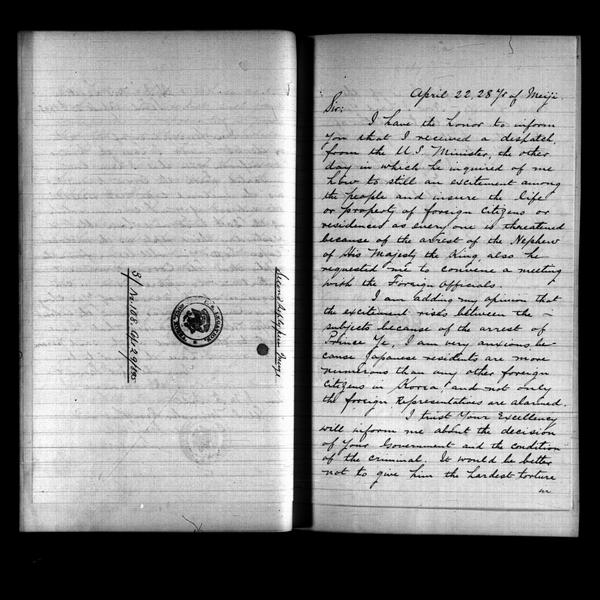 3/ No. 108. Apl 29/895
April 22, 28 Yr of Meiji.
Sir:
I have the honor to inform
you that I received a despatch,
from the U.S. Minister, the other
day in which he inquired of me
how to still an excitement among
the people and insure the life
or property of foreign Citizens or
residences as every one is threatened
because of the arrest of the Nephew
of His Majesty the King, also he
requested me to convene a meeting
with the Foreign Officials.
I am adding my opinion that
the excitement risks between the –
subjects because of the arrest of
Prince Ye, I am very anxious, be
cause Japanese residents are more
numerous than any other foreign
Citizens in Korea! and not only
the foreign Representatives are alarmed.
I trust Your Excellency
will inform me about the decision
of Your Government and the condition
of the criminal. It would be better
not to give him the hardest torture